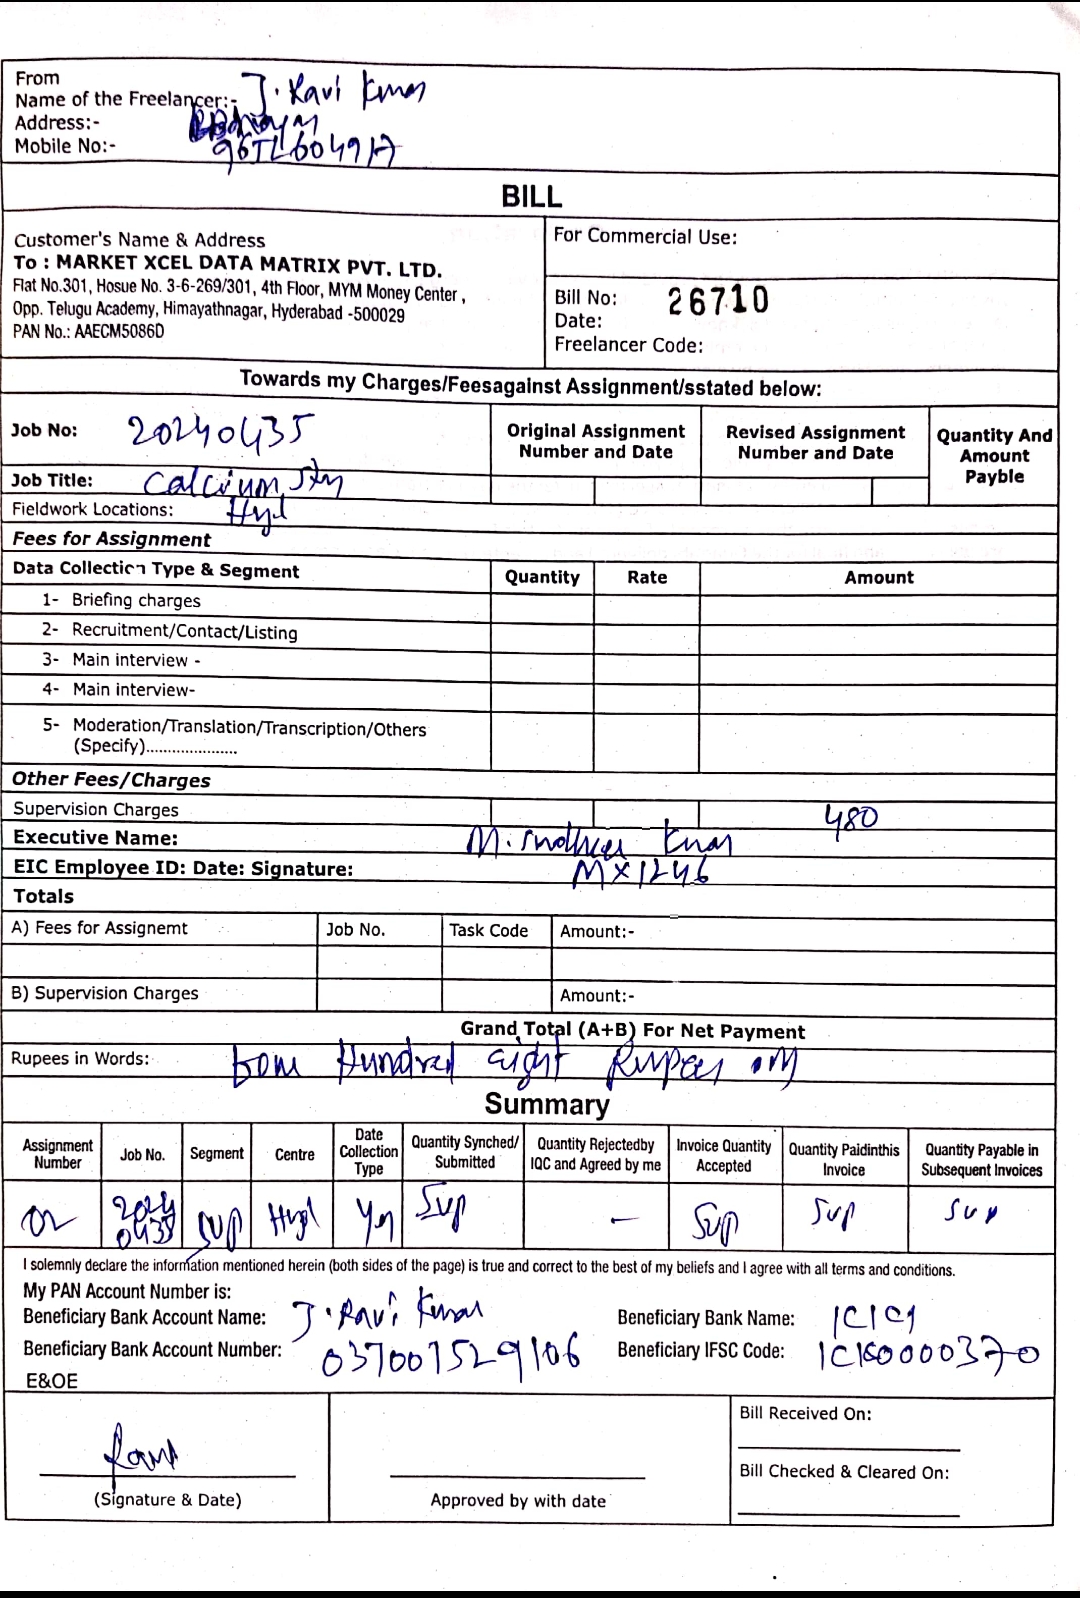 From
Name of the Freelancer:- J. Ravi Kumar
Address:-
Mobile No:-
BILL
Customer's Name & Address
To : MARKET XCEL DATA MATRIX PVT. LTD.
Flat No.301, Hosue No. 3-6-269/301, 4th Floor, MYM Money Center ,
Opp. Telugu Academy, Himayathnagar, Hyderabad -500029
PAN No.: AAECM5086D
For Commercial Use:
Bill No: 26710
Date:
Freelancer Code:
Towards my Charges/Feesagainst Assignment/sstated below:
Job No: 20240435
Original Assignment
Number and Date
Revised Assignment
Number and Date
Quantity And
Amount
Payble
Job Title: Calcium
Fieldwork Locations: Hyd
Fees for Assignment
Data Collection Type & Segment Quantity Rate Amount
1- Briefing charges
2- Recruitment/Contact/Listing
3- Main interview -
4- Main interview-
5- Moderation/Translation/Transcription/Others
(Specify)......................
Other Fees/Charges
Supervision Charges 480
Executive Name: M. Kumar
EIC Employee ID: Date: Signature: MX1246
Totals
A) Fees for Assignemt Job No. Task Code Amount:-
B) Supervision Charges Amount:-
Grand Total (A+B) For Net Payment
Rupees in Words: Hundred eight Rupees
Summary
Assignment
Number
Job No.
Segment
Centre
Date
Collection
Type
Quantity Synched/
Submitted
Quantity Rejectedby
IQC and Agreed by me
Invoice Quantity
Accepted
Quantity Paidinthis
Invoice
Quantity Payable in
Subsequent Invoices
02 2024 SUP Hyd Sup - Sup Sup Sup
0435
I solemnly declare the information mentioned herein (both sides of the page) is true and correct to the best of my beliefs and I agree with all terms and conditions.
My PAN Account Number is:
Beneficiary Bank Account Name: J. Ravi Kumar
Beneficiary Bank Name: ICICI
Beneficiary Bank Account Number: 037001529106
Beneficiary IFSC Code:
E&OE
Ravi
(Signature & Date)
Approved by with date
Bill Received On:
Bill Checked & Cleared On: